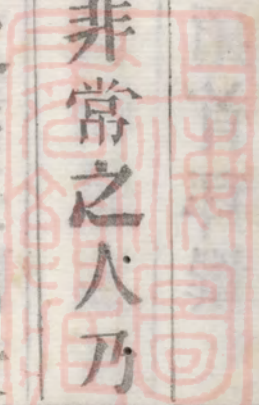 非常之人乃